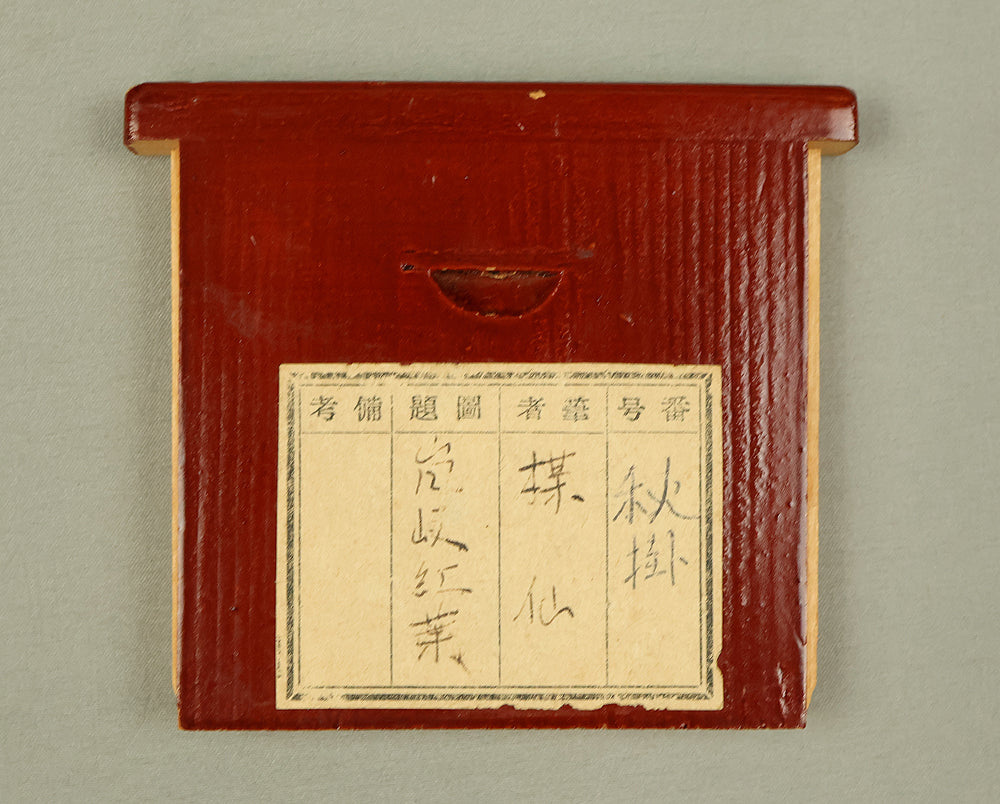 番号
秋掛
筆者
楳仙
圖題
嵐峡紅葉
備考